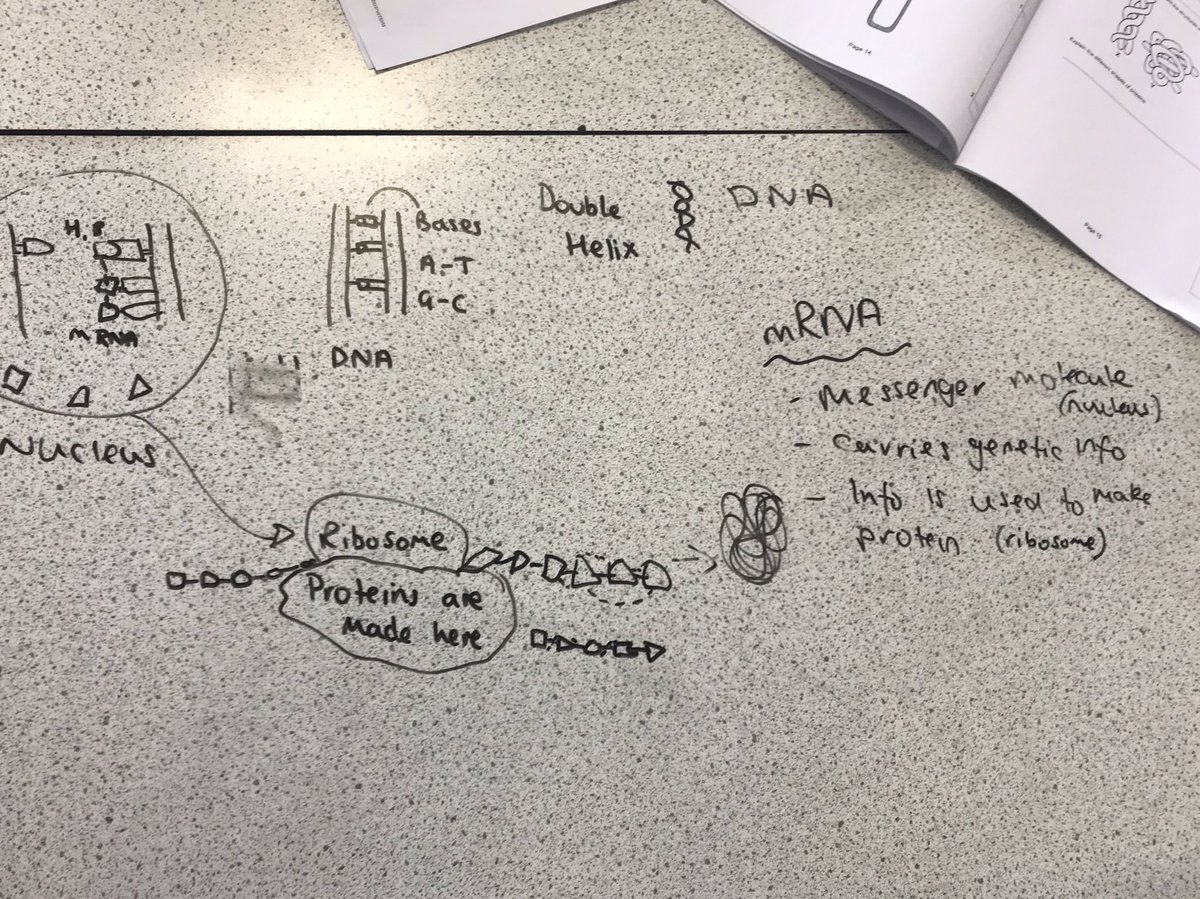 Page 14
Explain the different shapes of proteins
Page 15
H.B
mRNA
Nucleus
Bases
A-T
G-C
DNA
Double
Helix
DNA
mRNA
- Messenger molecule
(nucleus)
- Carries genetic info
- Info is used to make
protein (ribosome)
Ribosome
Proteins are
made here